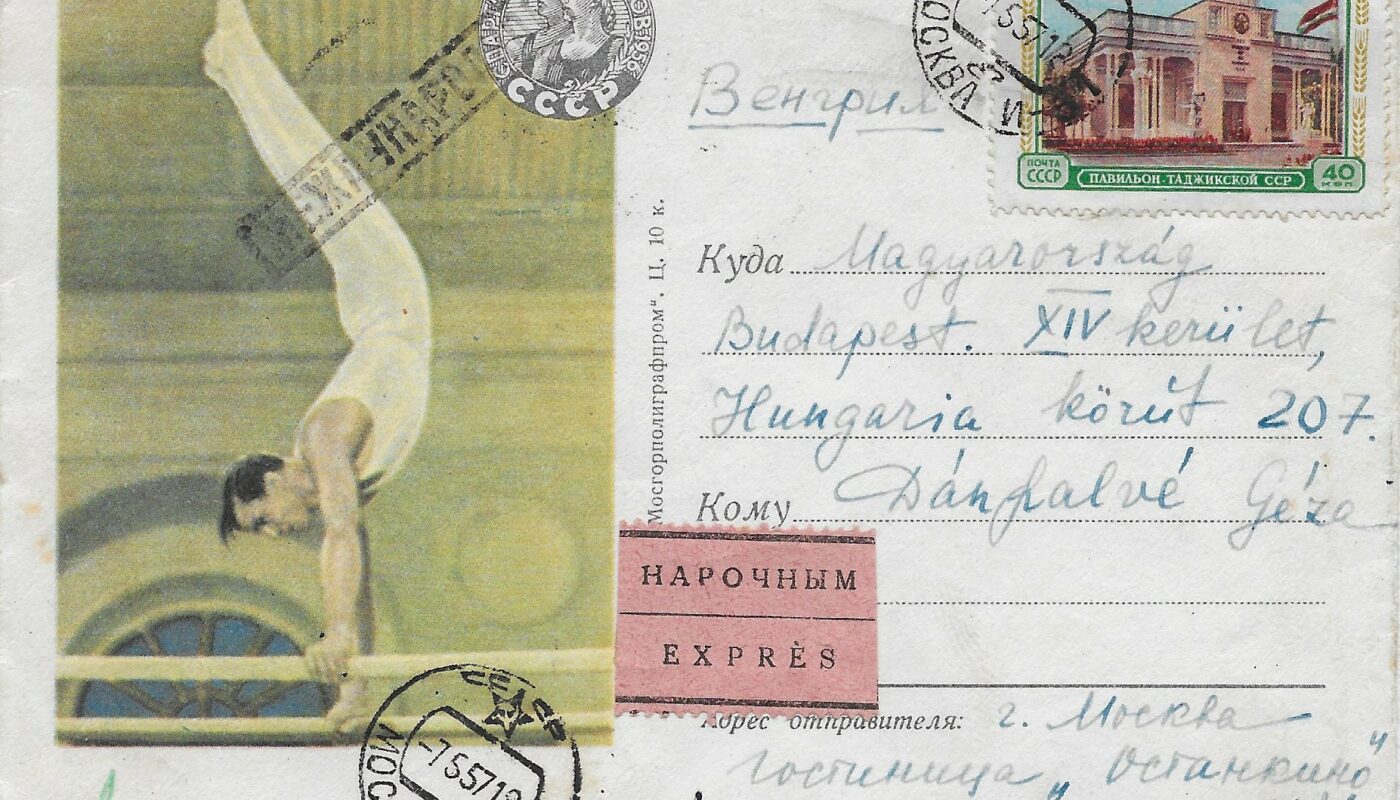 СССР
МОСКВА
-7 5 57 19
ПОЧТА СССР
ПАВИЛЬОН ТАДЖИКСКОЙ ССР
40 КОП
Венгрия
Мосгорполиграфпром". Ц. 10 к.
Куда Magyarország
Budapest. XIV kerület,
Hungaria körút 207.
Кому Dánfalvé Géza
НАРОЧНЫМ
EXPRÈS
Адрес отправителя: г. Москва
гостиница „Останкино"
СССР
-7 5 57 19